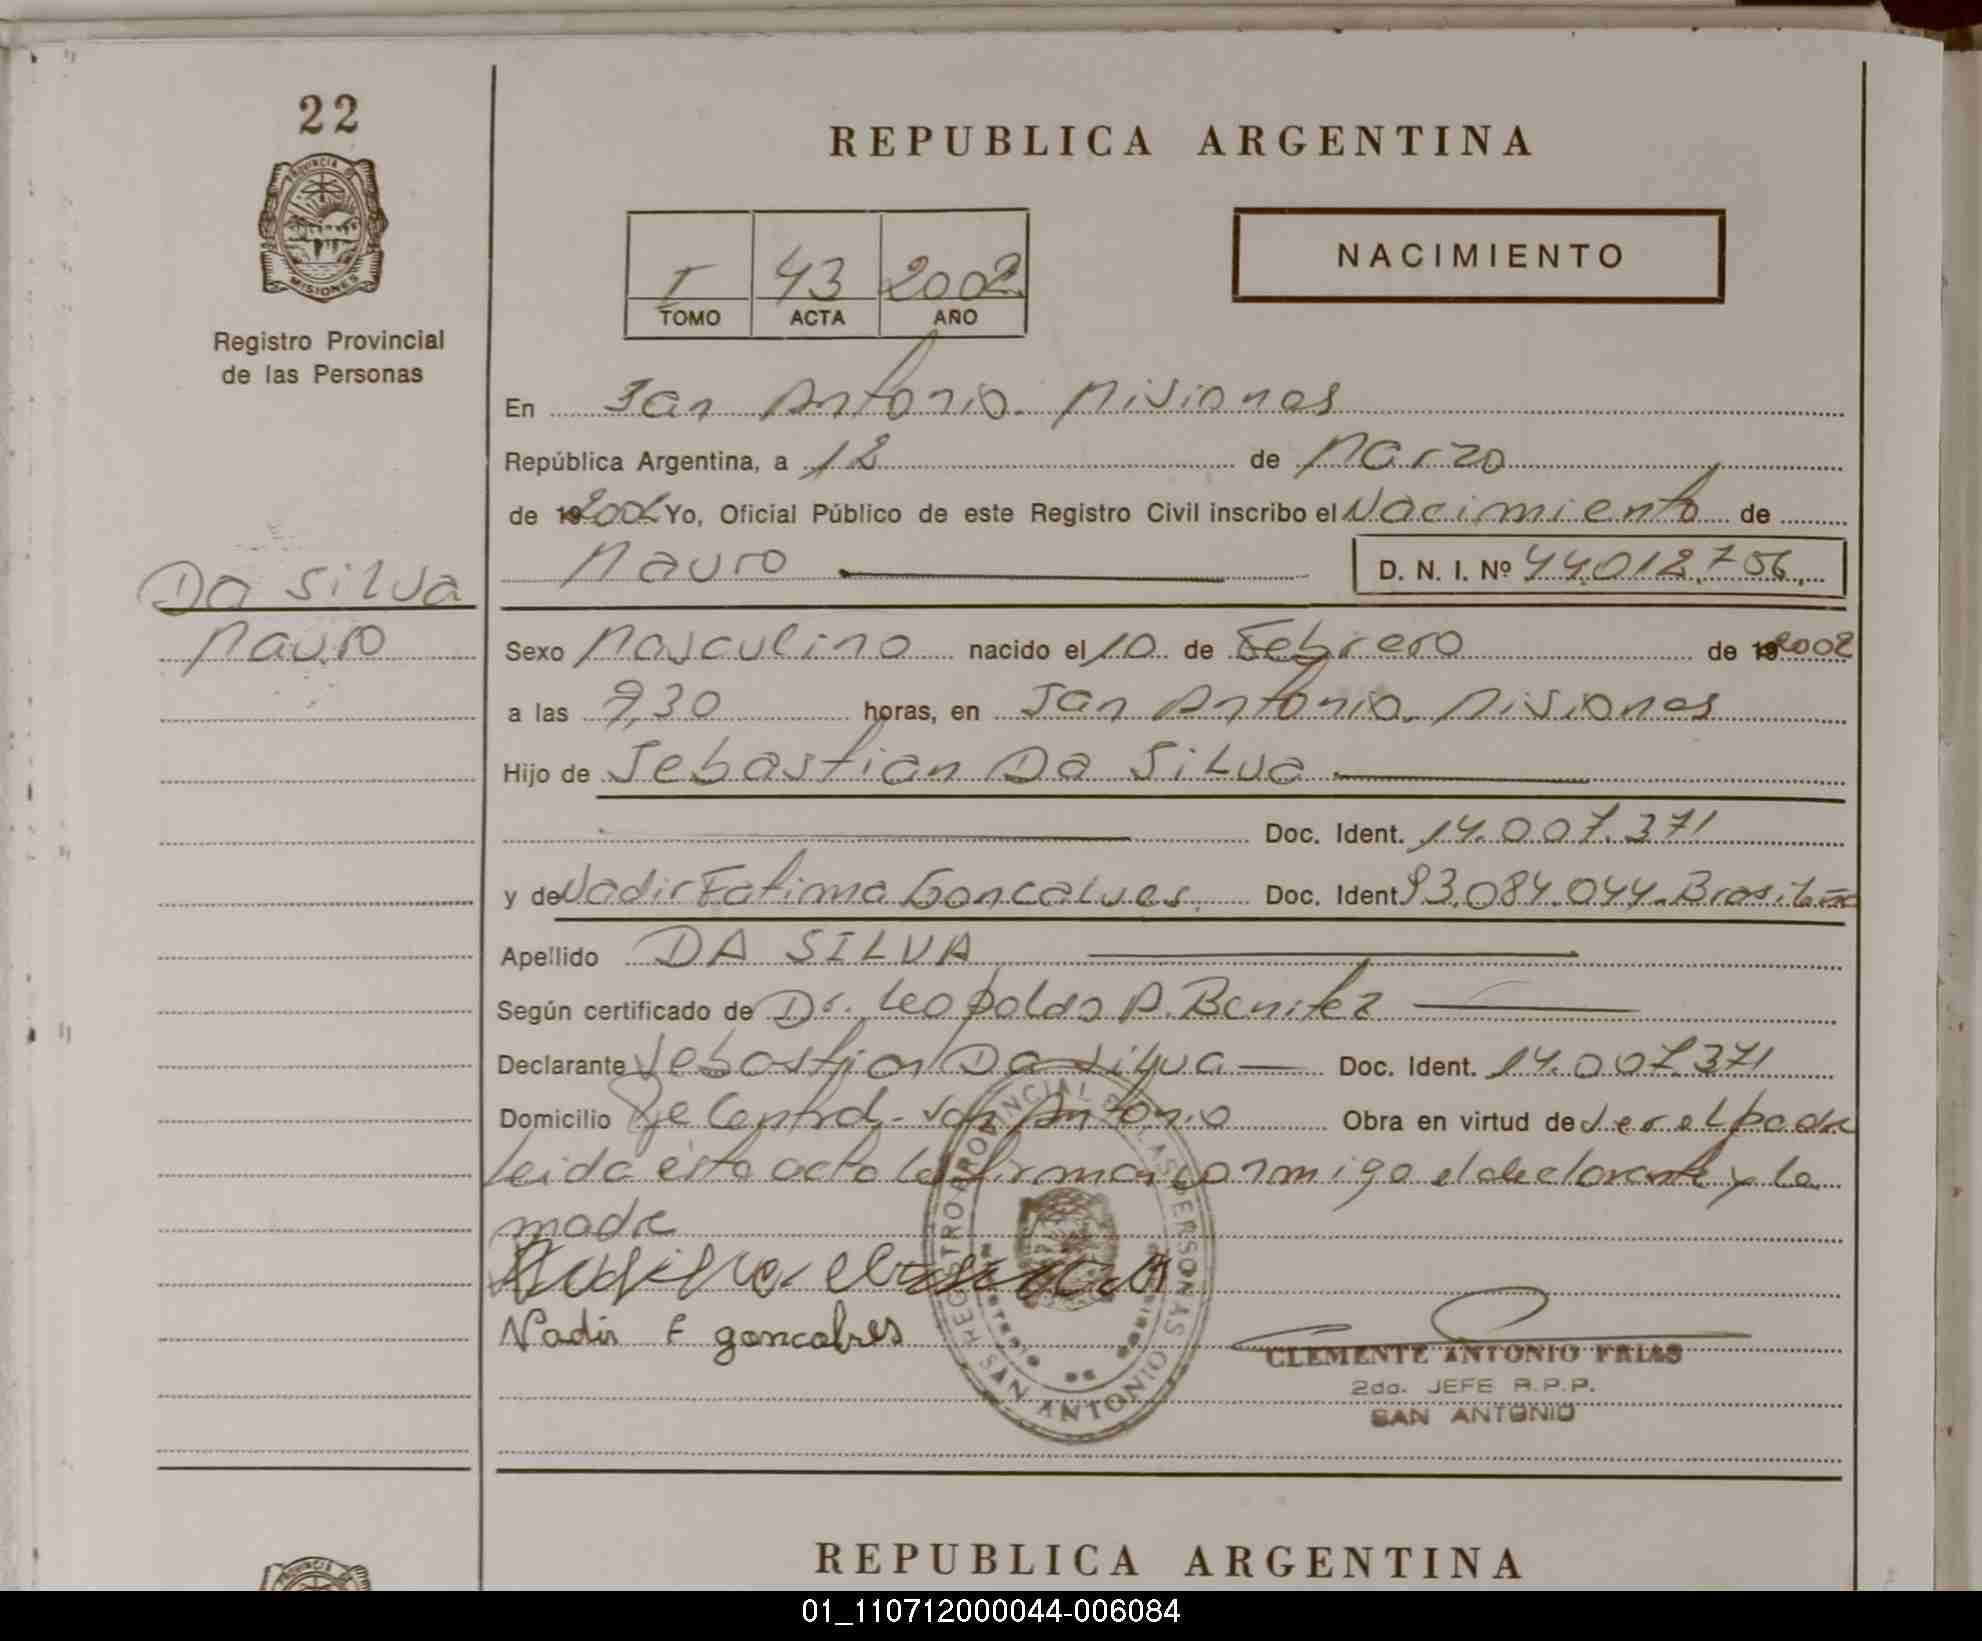 22
PROVINCIA DE
MISIONES
Registro Provincial
de las Personas
Da Silva
Mauro
REPUBLICA ARGENTINA
I 43 2002
TOMO ACTA AÑO
NACIMIENTO
En San Antonio. Misiones
República Argentina, a 12 de Marzo
de 192002 Yo, Oficial Público de este Registro Civil inscribo el Nacimiento de
Mauro D. N. I. Nº 44.018.756
Sexo Masculino nacido el 10 de Febrero de 192002
a las 9,30 horas, en San Antonio. Misiones
Hijo de Sebastian Da Silva
Doc. Ident. 14.007.371
y de Nadir Fatima Goncalves. Doc. Ident 93.084.044. Brasileña
Apellido DA SILVA
Según certificado de Dr. Leopoldo A. Benitez
Declarante Sebastian Da Silva Doc. Ident. 14.007.371
Domicilio Pje Central - San Antonio Obra en virtud de ser el padre
leida esta acta la firman conmigo el declarante y la
madre
Nadir F goncalves
REGISTRO PROVINCIAL DE LAS PERSONAS
SAN ANTONIO
CLEMENTE ANTONIO FRIAS
2do. JEFE R.P.P.
SAN ANTONIO
REPUBLICA ARGENTINA
PROVINCIA
01_110712000044-006084